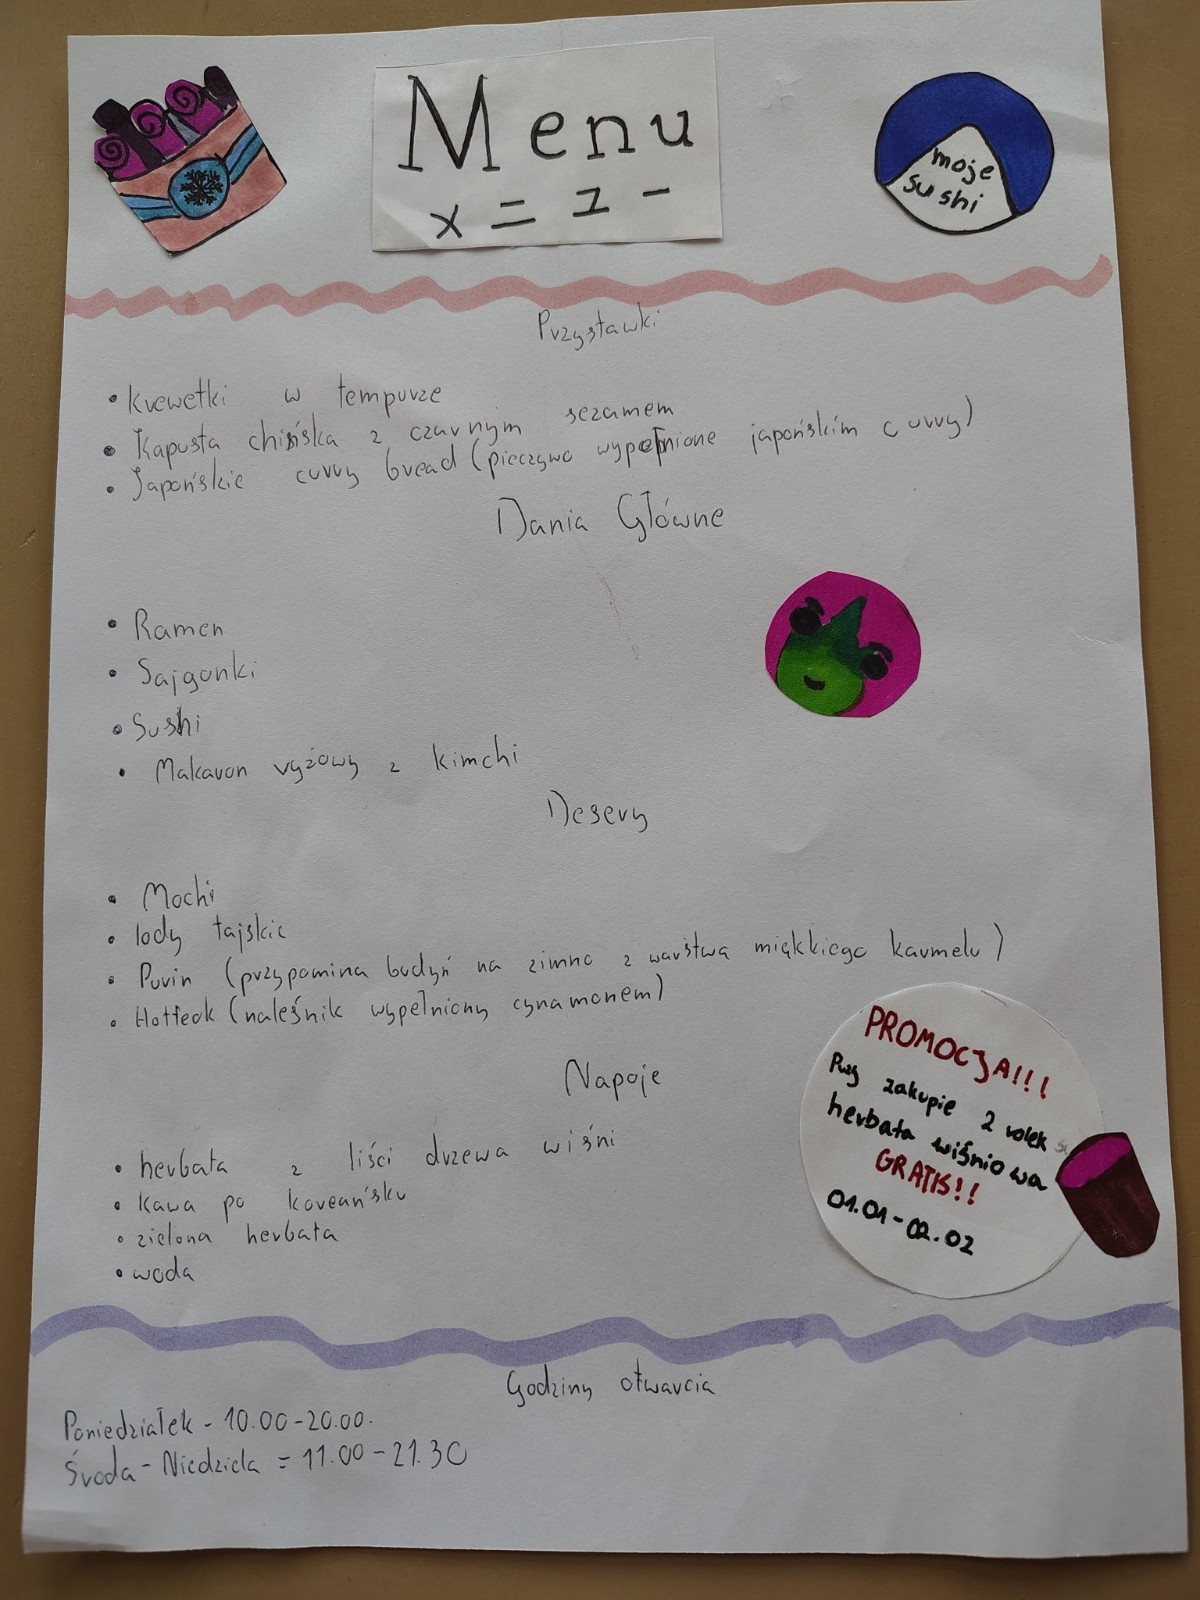 Menu
メニュー
moje
sushi
Przystawki
• Krewetki w tempurze
• Kapusta chińska z czarnym sezamem
• Japońskie curry bread (pieczywo wypełnione japońskim curry)
Dania Główne
• Ramen
• Sajgonki
• Sushi
• Makaron ryżowy z kimchi
Desery
• Mochi
• lody tajskie
• Purin (przypomina budyń na zimno z warstwą miękkiego karmelu)
• Hotteok (naleśnik wypełniony cynamonem)
Napoje
• herbata z liści drzewa wiśni
• kawa po koreańsku
• zielona herbata
• woda
PROMOCJA!!!
Przy zakupie 2 rolek
herbata wiśniowa
GRATIS!!
01.01-02.02
Godziny otwarcia
Poniedziałek - 10.00-20.00.
Środa - Niedziela = 11.00-21.30